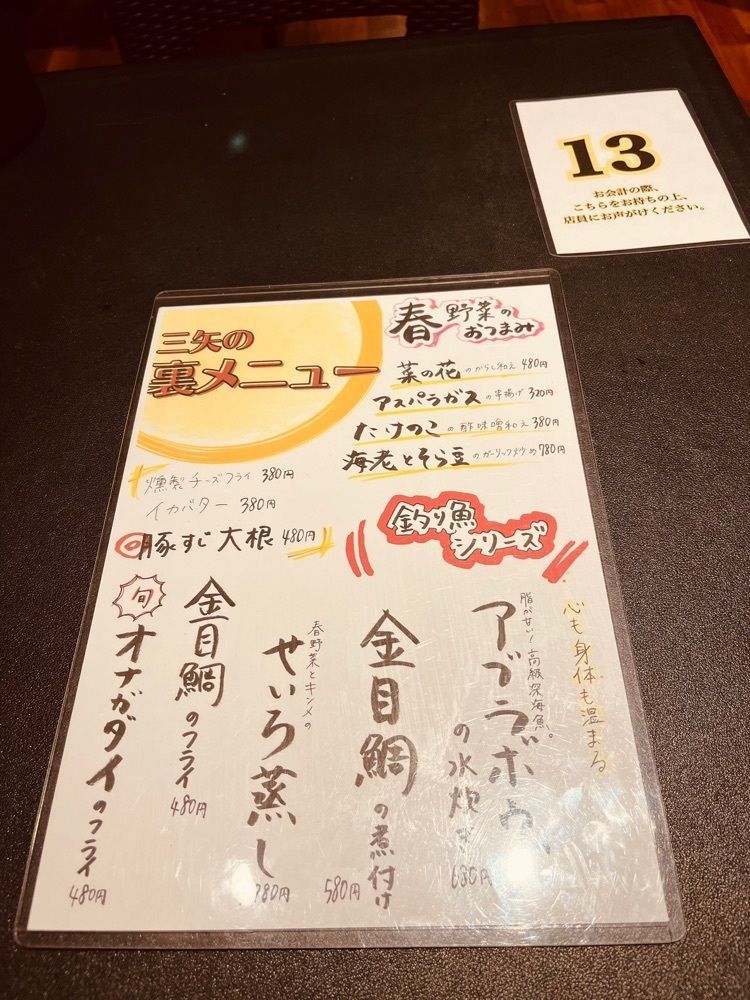 13
お会計の際、
こちらをお持ちの上、
店員にお声がけください。
三矢の
裏メニュー
春野菜の
おつまみ
菜の花のからし和え 480円
アスパラガスの串揚げ 320円
たけのこの酢味噌和え 380円
海老とそら豆のガーリック炒め 780円
燻製チーズフライ 380円
イカバター 380円
豚すじ大根 480円
釣り魚
シリーズ
心も身体も温まる
脂が甘い!高級深海魚。
アブラボウ
の水炊き
680円
金目鯛の煮付け
580円
春野菜とキンメの
せいろ蒸し
780円
金目鯛のフライ
480円
旬
オナガダイのフライ
480円